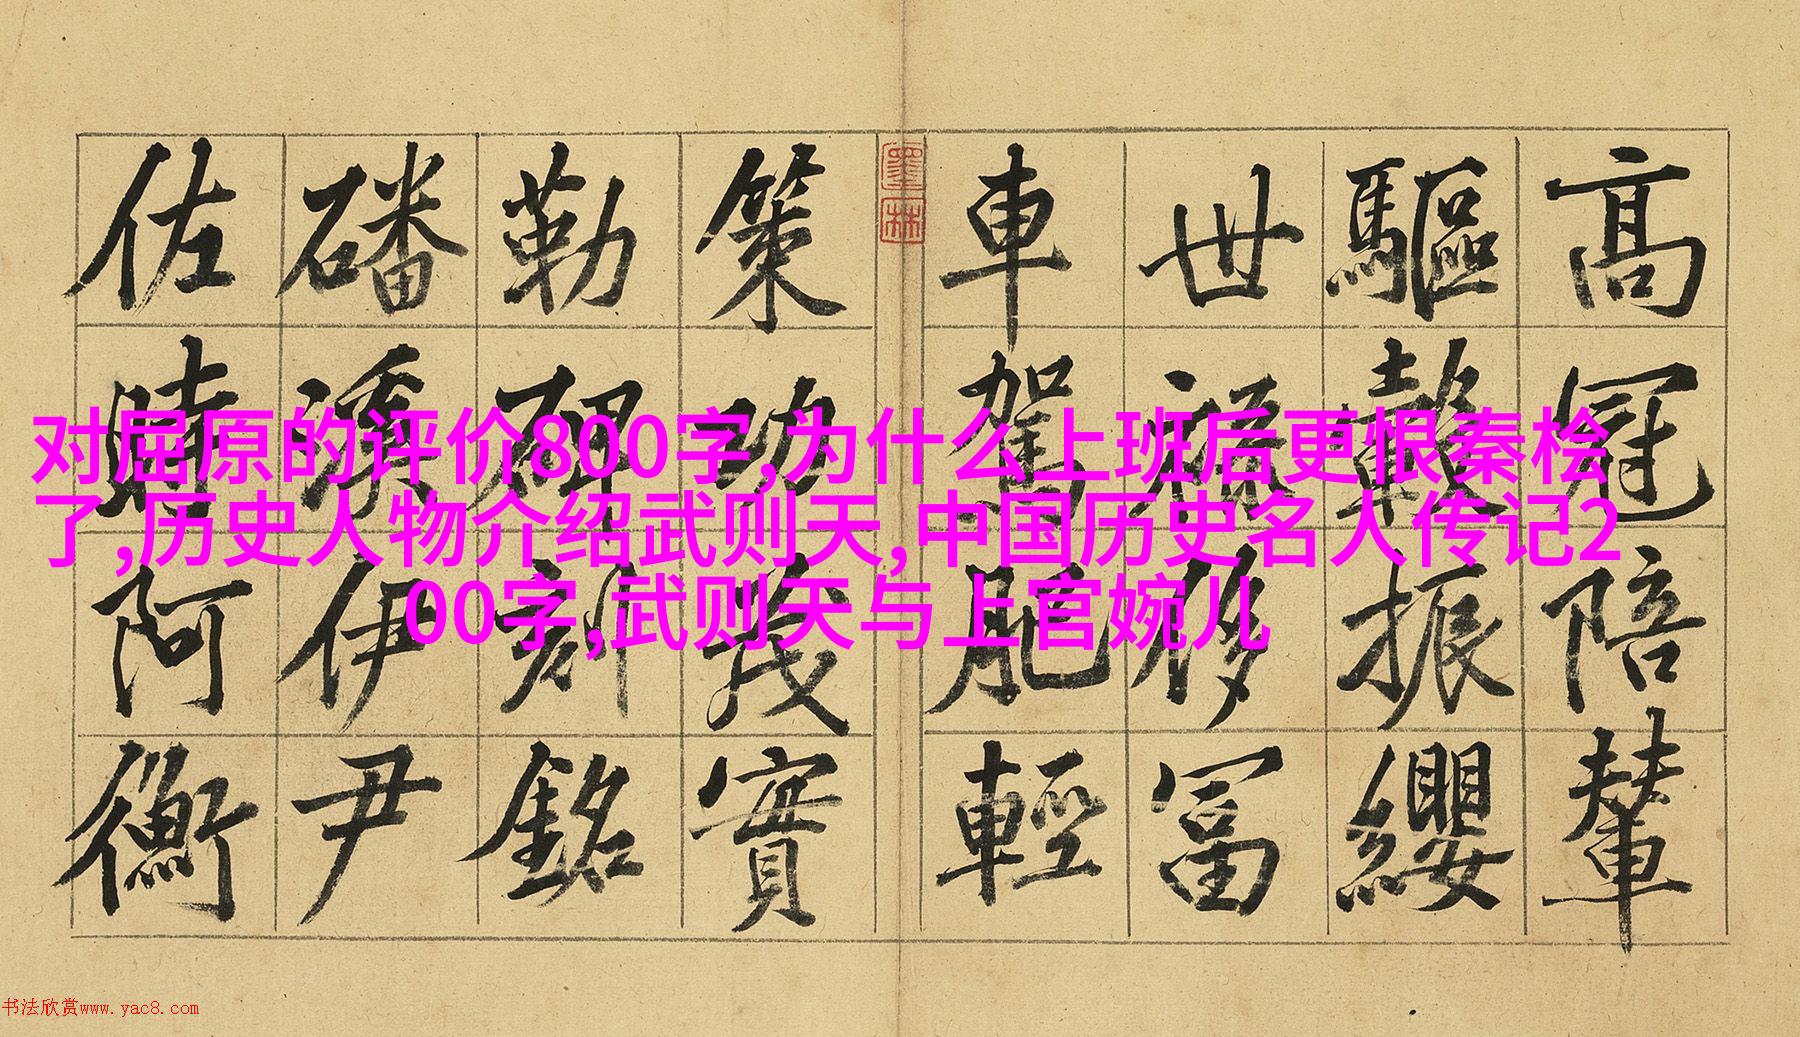 高冠陪輦
驅轂振纓
世祿侈冨
車駕肥輕
策功茂實
勒碑刻銘
磻溪伊尹
佐時阿衡
墨林
对屈原的评价800字,为什么上班后更恨秦桧
了,历史人物介绍武则天,中国历史名人传记2
00字,武则天与上官婉儿
书法欣赏www.yac8.com